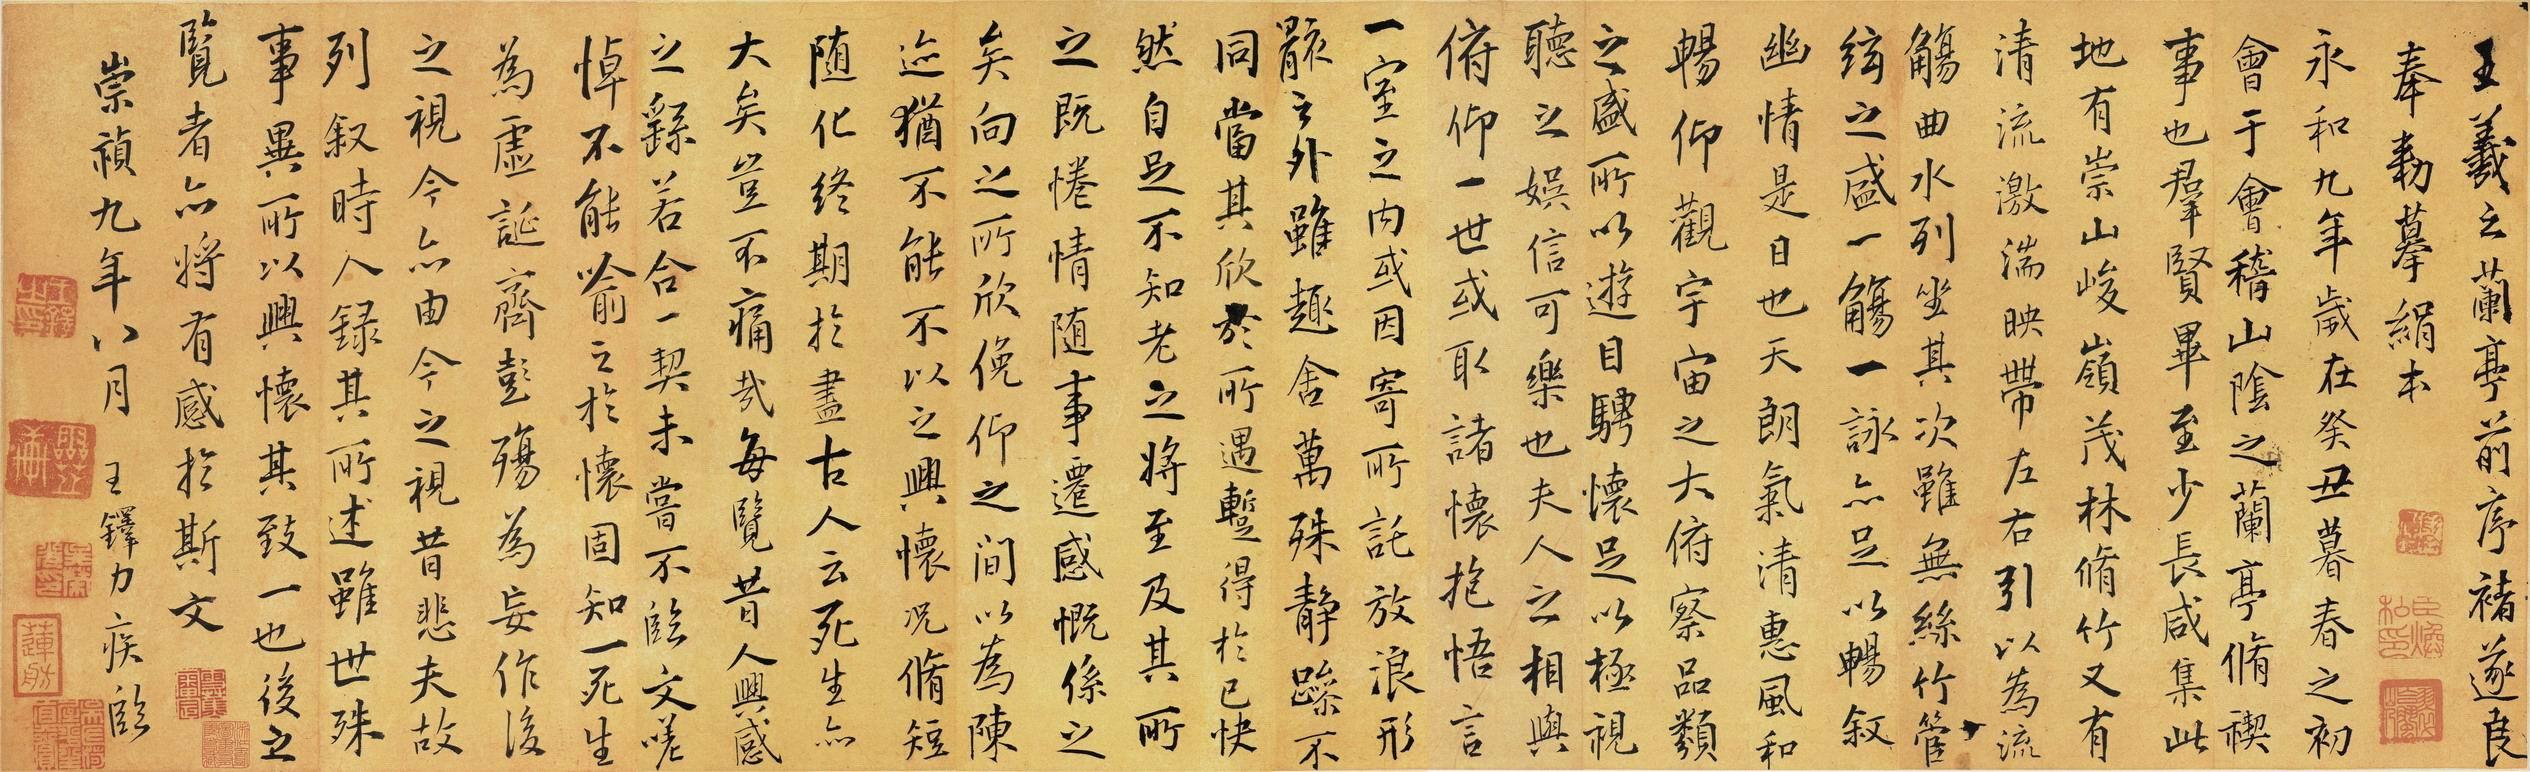 王羲之蘭亭前序褚遂良
奉勅摹絹本
永和九年歲在癸丑暮春之初
會于會稽山陰之蘭亭脩禊
事也羣賢畢至少長咸集此
地有崇山峻嶺茂林脩竹又有
清流激湍映帶左右引以為流
觴曲水列坐其次雖無絲竹管
絃之盛一觴一詠亦足以暢叙
幽情是日也天朗氣清惠風和
暢仰觀宇宙之大俯察品類
之盛所以遊目騁懷足以極視
聽之娛信可樂也夫人之相與
俯仰一世或取諸懷抱悟言
一室之内或因寄所託放浪形
骸之外雖趣舍萬殊静躁不
同當其欣於所遇蹔得於己快
然自足不知老之将至及其所
之既惓情随事遷感慨係之
矣向之所欣俛仰之間以為陳
迹猶不能不以之興懷况脩短
随化終期於盡古人云死生亦
大矣豈不痛哉每覽昔人興感
之繇若合一契未嘗不臨文嗟
悼不能喻之於懷固知一死生
為虛誕齊彭殤為妄作後
之視今亦由今之視昔悲夫故
列叙時人録其所述雖世殊
事異所以興懷其致一也後之
覽者亦将有感於斯文
崇禎九年八月 王鐸力疾臨